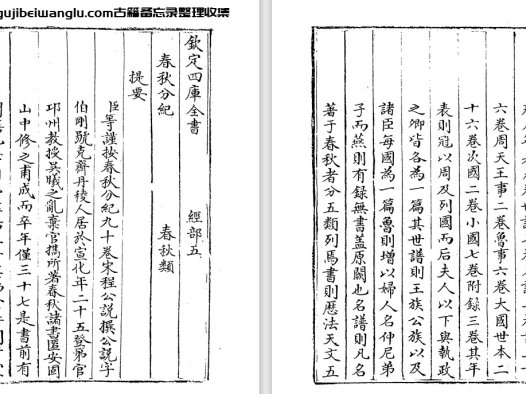 gujibeiwanglu.com古籍备忘录整理收集
欽定四庫全書 經部五
春秋分紀 春秋類
提要
臣等謹按春秋分紀九十卷宋程公說撰公說字
伯剛號克齋丹稜人居於宣化年二十五登第官
邛州教授吳曦之亂棄官攜所著春秋諸書匿安固
山中修之甫成而卒年僅三十七是書前有
六卷周天王事二卷魯事六卷大國世本二
十六卷次國二卷小國七卷附錄三卷其年
表則冠以周及列國而后夫人以下與執政
之卿皆各為一篇其世譜則王族公族以及
諸臣每國為一篇魯則增以婦人名仲尼弟
子而燕則有錄無書蓋原闕也名譜則凡名
著于春秋者分五類列焉書則厯法天文五